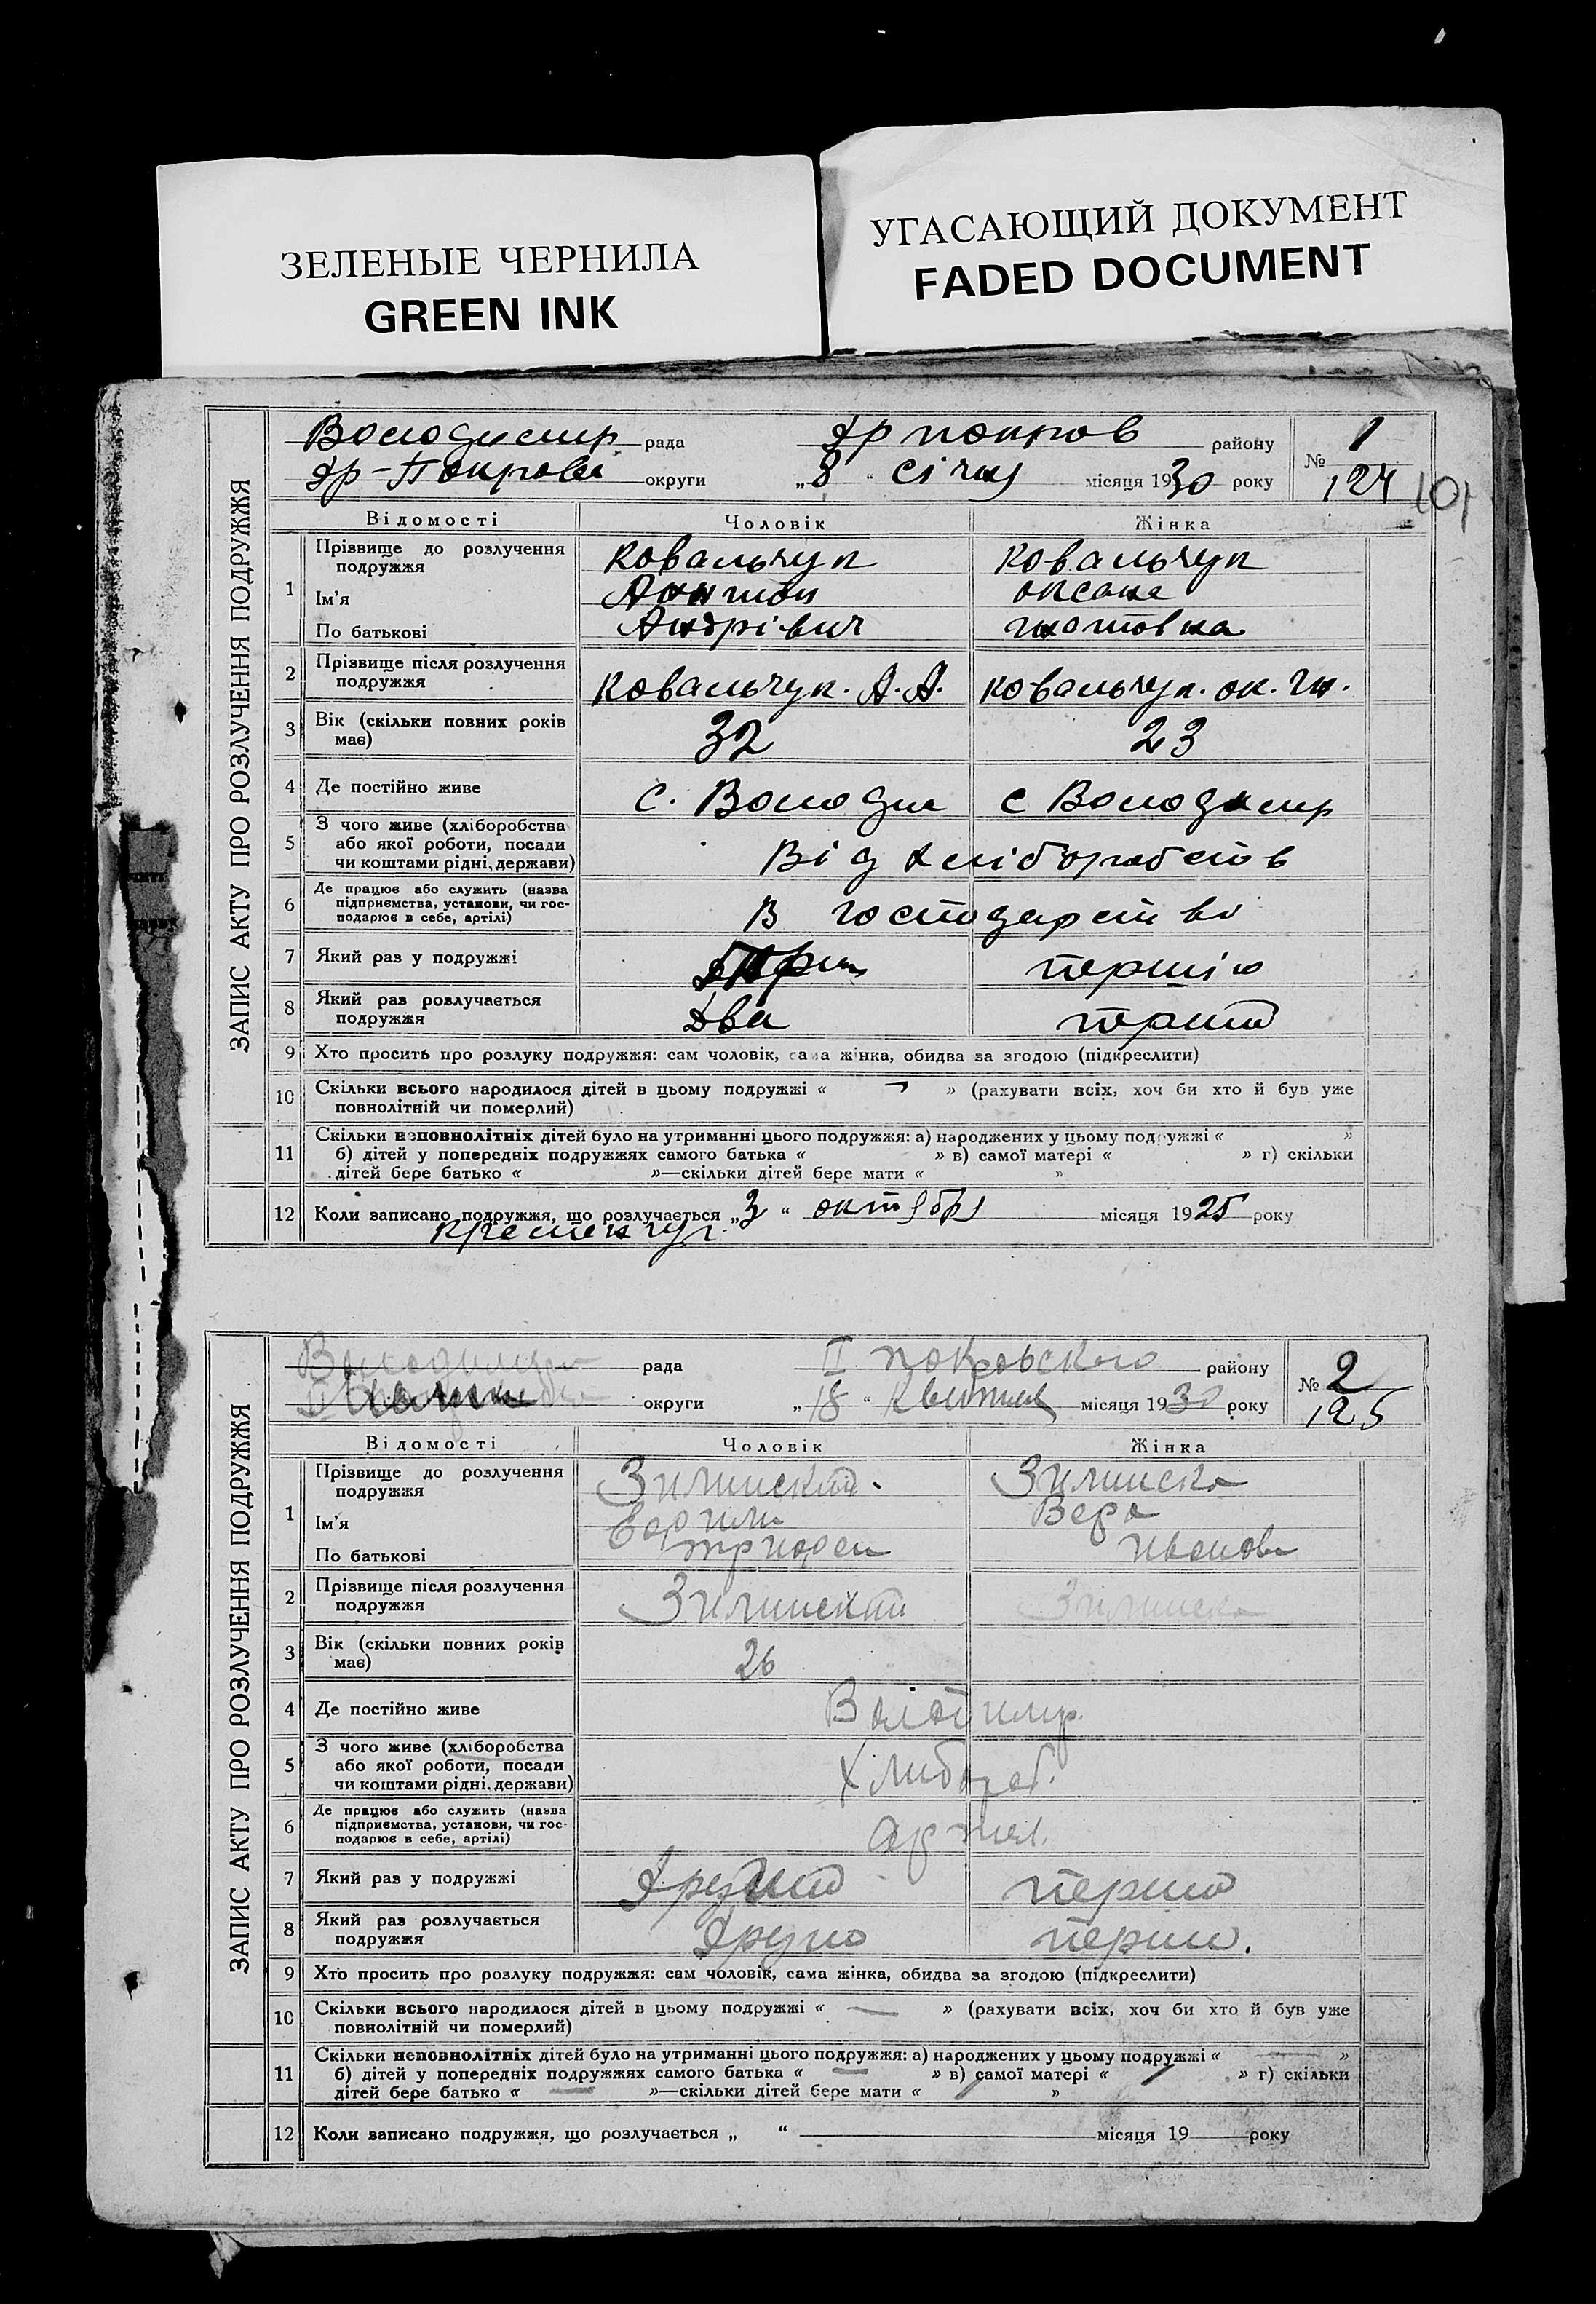 ЗЕЛЕНЫЕ ЧЕРНИЛА
GREEN INK
УГАСАЮЩИЙ ДОКУМЕНТ
FADED DOCUMENT
ЗАПИС АКТУ ПРО РОЗЛУЧЕННЯ ПОДРУЖЖЯ
Володимир рада др покров району № 1
др-Покров округи „8“ січня місяця 1930 року 124
101
Відомості Чоловік Жінка
1 Прізвище до розлучення подружжя Ковальчук Ковальчук
Ім'я Антон Оксана
По батькові Андрівич
2 Прізвище після розлучення подружжя Ковальчук. А. А. Ковальчук. ок. Гн.
3 Вік (скільки повних років має) 32 23
4 Де постійно живе с. Володим с Володимир
5 З чого живе (хліборобства або якої роботи, посади чи коштами рідні, держави) Від хліборобств
6 Де працює або служить (назва підприємства, установи, чи господарює в себе, артілі) В господарстві
7 Який раз у подружжі
8 Який раз розлучається подружжя Два
9 Хто просить про розлуку подружжя: сам чоловік, сама жінка, обидва за згодою (підкреслити)
10 Скільки всього народилося дітей в цьому подружжі « — » (рахувати всіх, хоч би хто й був уже
повнолітній чи померлий)
11 Скільки неповнолітніх дітей було на утриманні цього подружжя: а) народжених у цьому подружжі « »
б) дітей у попередніх подружжях самого батька « » в) самої матері « » г) скільки
дітей бере батько « »—скільки дітей бере мати « »
12 Коли записано подружжя, що розлучається „3“ октября місяця 1925 року
Кременчуг.
ЗАПИС АКТУ ПРО РОЗЛУЧЕННЯ ПОДРУЖЖЯ
рада П покровского району № 2
округи „18“ Квітня місяця 1930 року 125
Відомості Чоловік Жінка
1 Прізвище до розлучення подружжя Зилинский. Зилинска
Ім'я Вера
По батькові Иванов
2 Прізвище після розлучення подружжя Зилинский Зилинска
3 Вік (скільки повних років має) 26
4 Де постійно живе
5 З чого живе (хліборобства або якої роботи, посади чи коштами рідні, держави) Хлибороб.
6 Де працює або служить (назва підприємства, установи, чи господарює в себе, артілі) артил.
7 Який раз у подружжі
8 Який раз розлучається подружжя
9 Хто просить про розлуку подружжя: сам чоловік, сама жінка, обидва за згодою (підкреслити)
10 Скільки всього народилося дітей в цьому подружжі « — » (рахувати всіх, хоч би хто й був уже
повнолітній чи померлий)
11 Скільки неповнолітніх дітей було на утриманні цього подружжя: а) народжених у цьому подружжі « — »
б) дітей у попередніх подружжях самого батька « — » в) самої матері « — » г) скільки
дітей бере батько « — »—скільки дітей бере мати « — »
12 Коли записано подружжя, що розлучається „ “ місяця 19 року